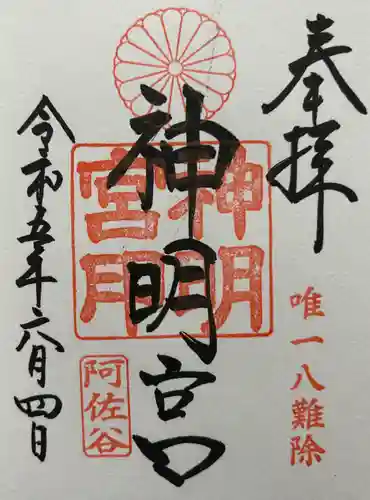 奉拝
唯一八難除
神明宮
神明宮印
阿佐谷
令和五年六月四日